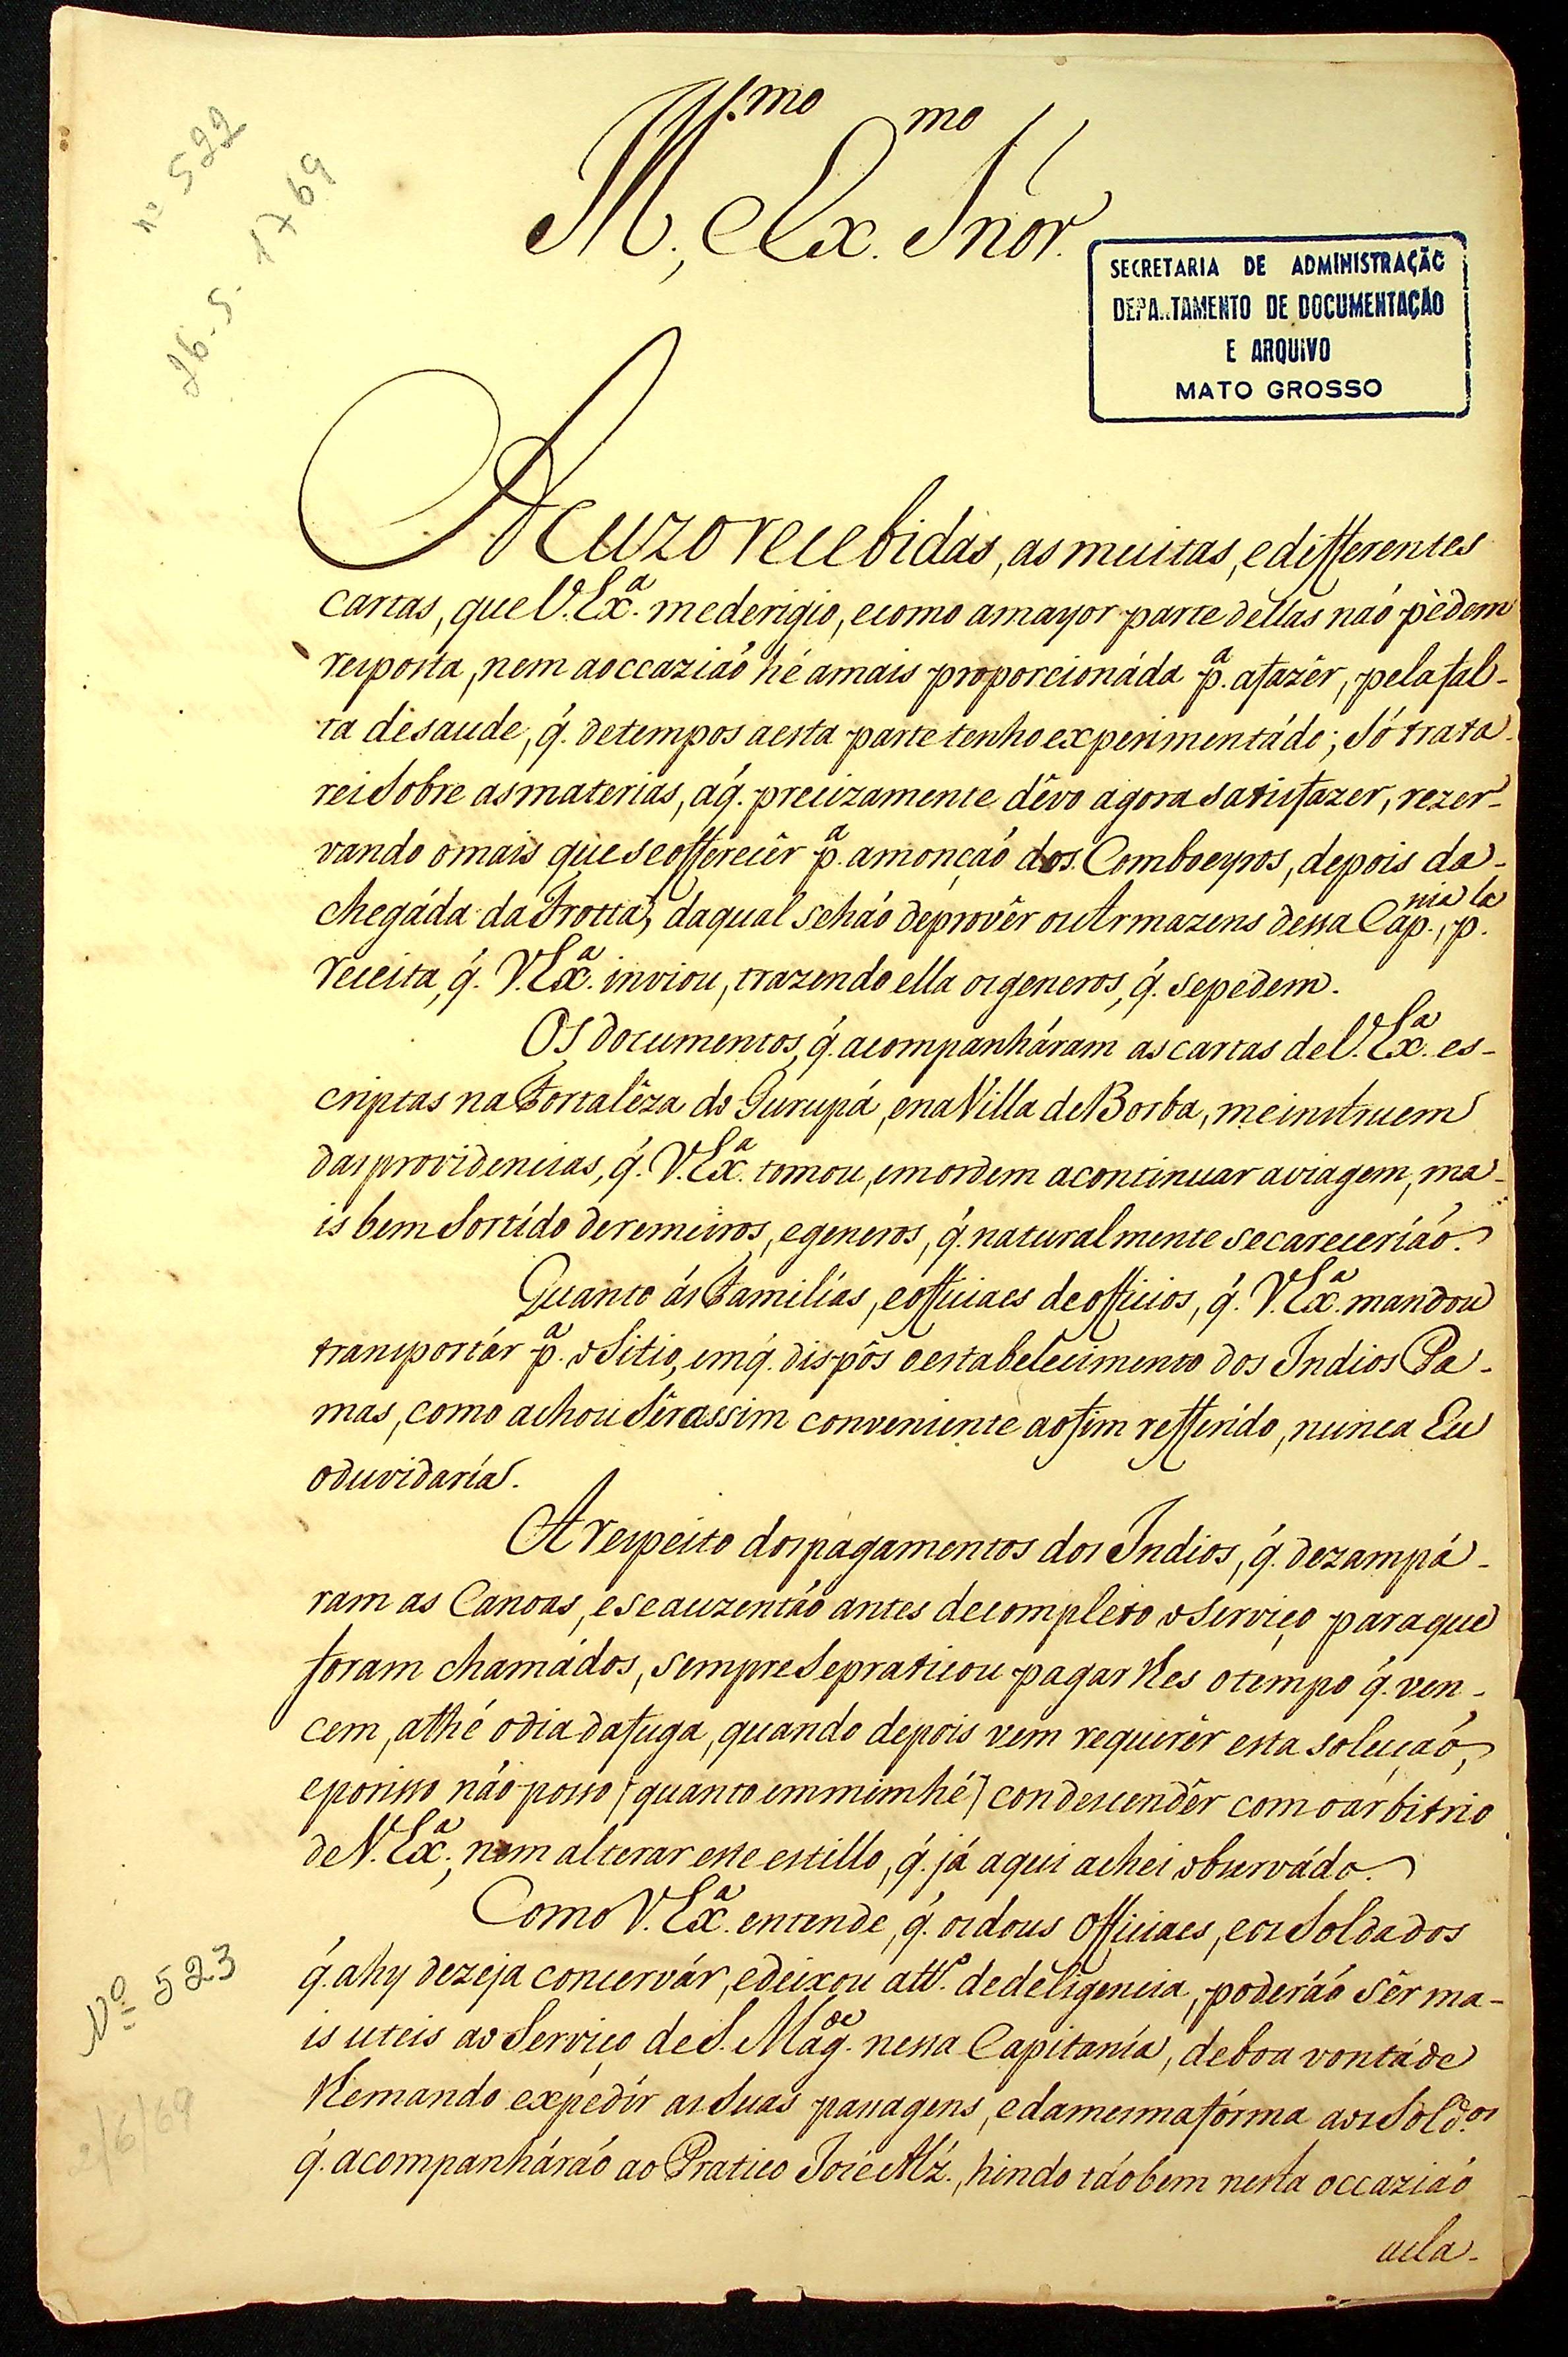 nº 522
26-5-1769
Ill.mo, e Ex.mo Snõr.
SECRETARIA DE ADMINISTRAÇÃO
DEPA..TAMENTO DE DOCUMENTAÇÃO
E ARQUIVO
MATO GROSSO
Acuzo recebidas, as muitas, e differentes
cartas, que V. Ex.ª me derigio, e como a mayor parte dellas naó pèdem
resposta, nem a occaziaó hé a mais proporcionáda p.ª a fazêr, pela fal-
ta de saude, q́. de tempos a esta parte tenho experimentádo; Só trata-
rei Sobre as materias, a q́. precizamente dêvo agora satisfazer, rezer-
vando o mais que se offerecêr p.ª a monçaó dos Comboeyros, depois da
chegáda da Frotta, da qual se háo de provêr os Armazens dessa Cap.nia, p.la
receita, q́. V. Ex.ª inviou, trazendo ella os generos, q́. se pedem.
Os documentos, q́. acompanháram as cartas de V. Ex.ª es-
criptas na Fortalêza do Gurupá, e na Villa de Borba, me instruem
das providencias, q́. V. Ex.ª tomou, em ordem a continuar a viagem, ma-
is bem Sortído de remeiros, e generos, q́. naturalmente se careceriáo.
Quanto ás Famílias, e officiaes de officios, q́. V. Ex.ª mandou
transportár p.ª o Sitio, em q́. dispôs o estabelecimento dos Indios Pa-
mas, como achou Sêr assim conveniente ao fim refferído, nunca Eu
o duvidaría.
A respeito dos pagamentos dos Indios, q́. dezampá-
ram as Canoas, e se auzentáo antes de completo o Serviço para que
foram chamádos, sempre Se praticou pagar lhes o tempo q́. ven-
cem, athé o dia da fuga, quando depois vem requerêr esta soluçaó,
e por isso náo posso [quánto em mim hé] condescendêr com o árbitrio
de V. Ex.ª, nem alterar este estillo, q́. já aqui achei observádo.
Como V. Ex.ª entende, q́. os dous Officiaes, e os Soldados
q́. ahy dezeja concervár, e deixou att.º de deligencia, poderáó sêr ma-
is uteis ao Serviço de S. Mag.de nessa Capitanía, de boa vontáde
lhe mando expedír as Suas passagens, e da mesma fórma aos Sold.os
q́. acompanháráó ao Pratico Jozé Alź., hindo táobem nesta occaziáó
Nº 523
2/6/69